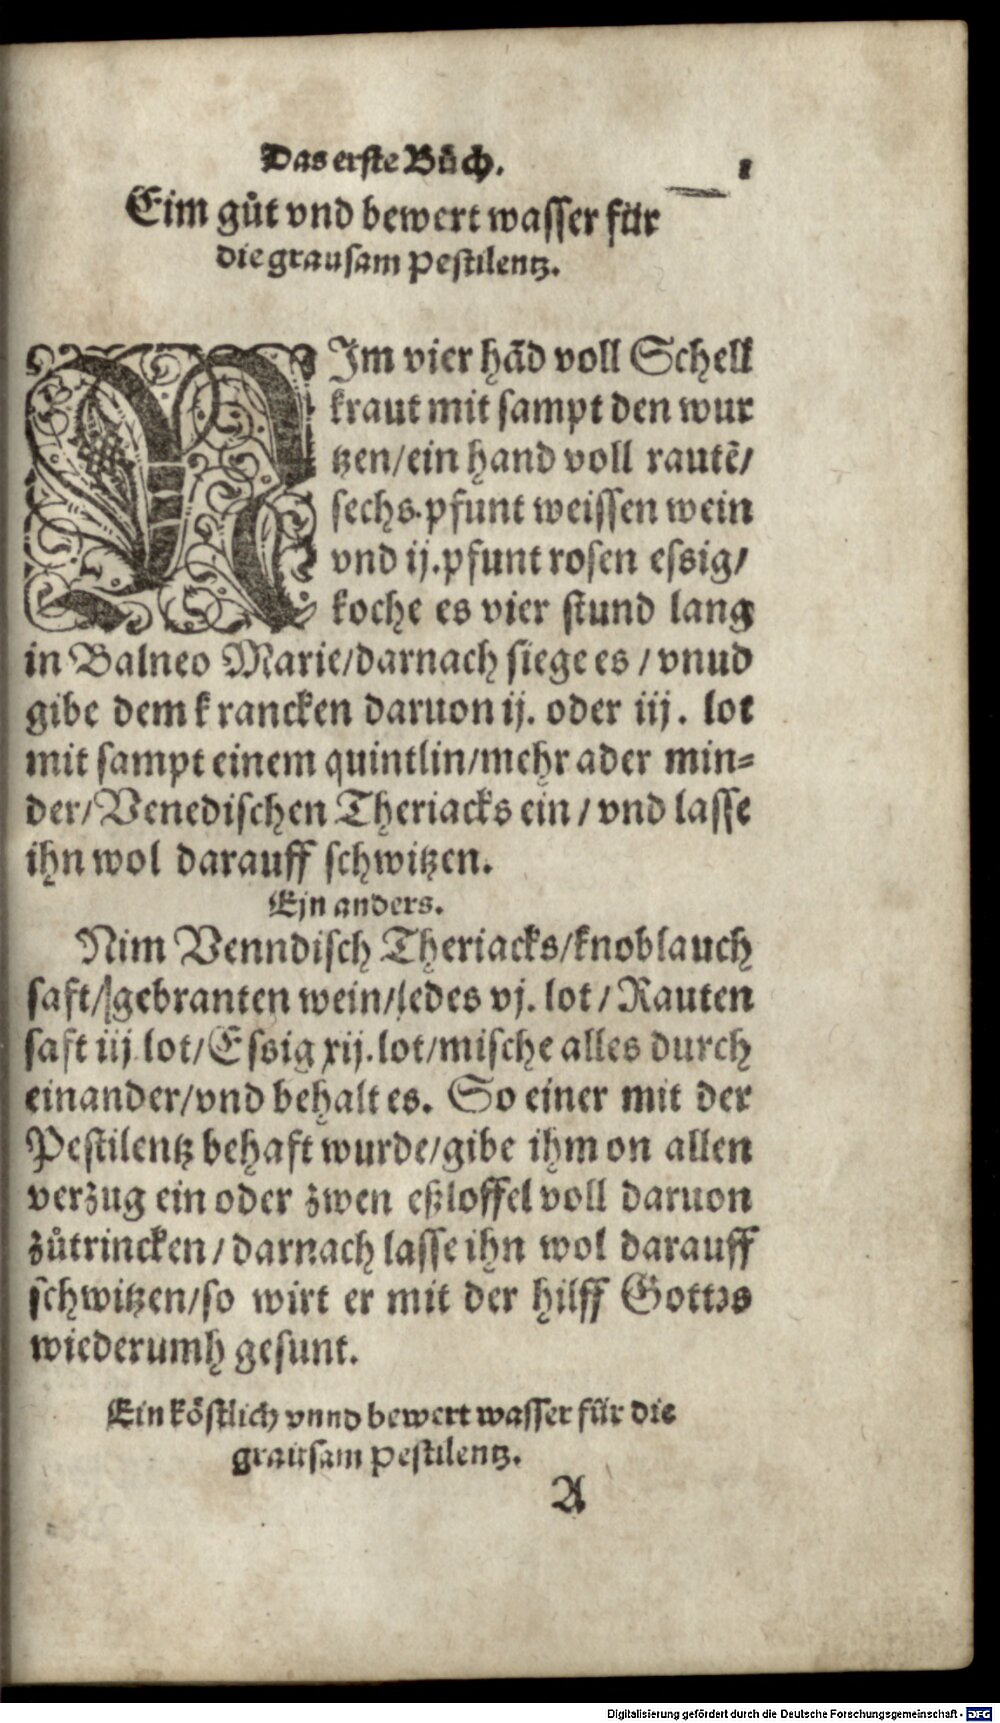 Das erste Bůch. 1
Eim gůt vnd bewert wasser für
die grausam Pestilentz.
NIm vier hãd voll Schell
kraut mit sampt den wur
tzen/ein hand voll rautẽ/
sechs.pfunt weissen wein
vnd ij.pfunt rosen essig/
koche es vier stund lang
in Balneo Marie/darnach siege es / vnud
gibe dem krancken daruon ij. oder iij. lot
mit sampt einem quintlin/mehr ader min-
der/Venedischen Theriacks ein / vnd lasse
ihn wol darauff schwitzen.
Ejn anders.
Nim Venndisch Theriacks/knoblauch
saft/gebranten wein/jedes vj. lot / Rauten
saft iij lot/Essig xij.lot/mische alles durch
einander/vnd behalt es. So einer mit der
Pestilentz behaft wurde/gibe ihm on allen
verzug ein oder zwen eßloffel voll daruon
zůtrincken / darnach lasse ihn wol darauff
schwitzen/so wirt er mit der hilff Gottes
wiederumh gesunt.
Ein köstlich vnnd bewert wasser für die
grausam Pestilentz.
A
Digitalisierung gefördert durch die Deutsche Forschungsgemeinschaft - DFG